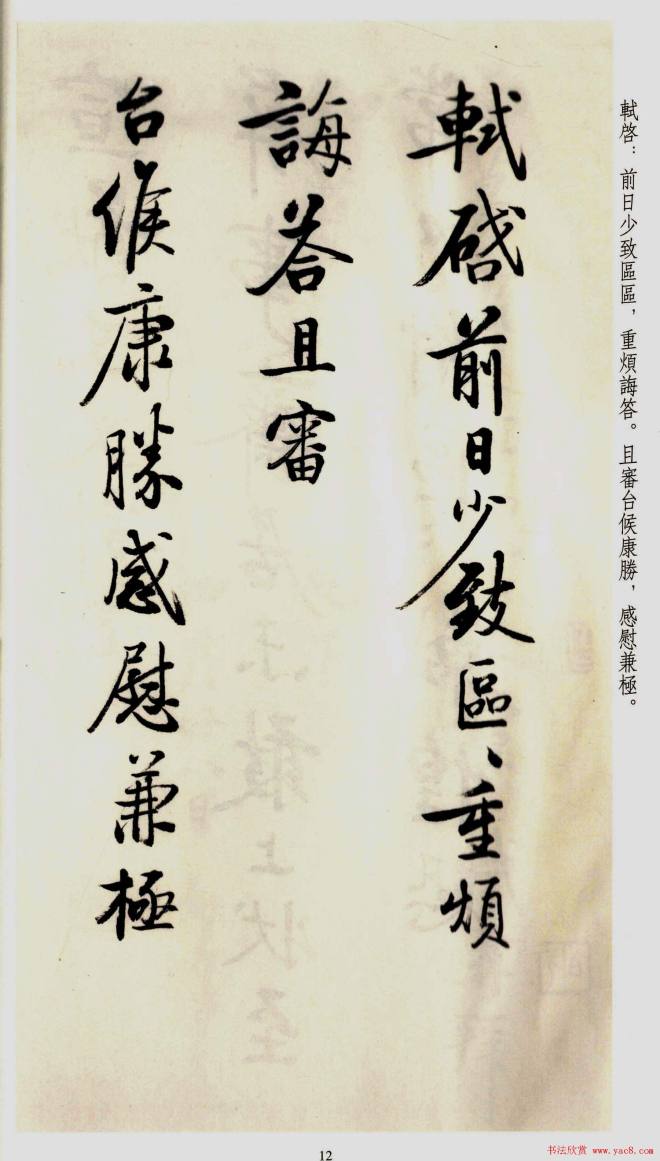 軾啓：前日少致區區，重煩誨答。且審台候康勝，感慰兼極。
軾啓前日少致區〻重煩
誨答且審
台候康勝感慰兼極
12
书法欣赏 www.yac8.com